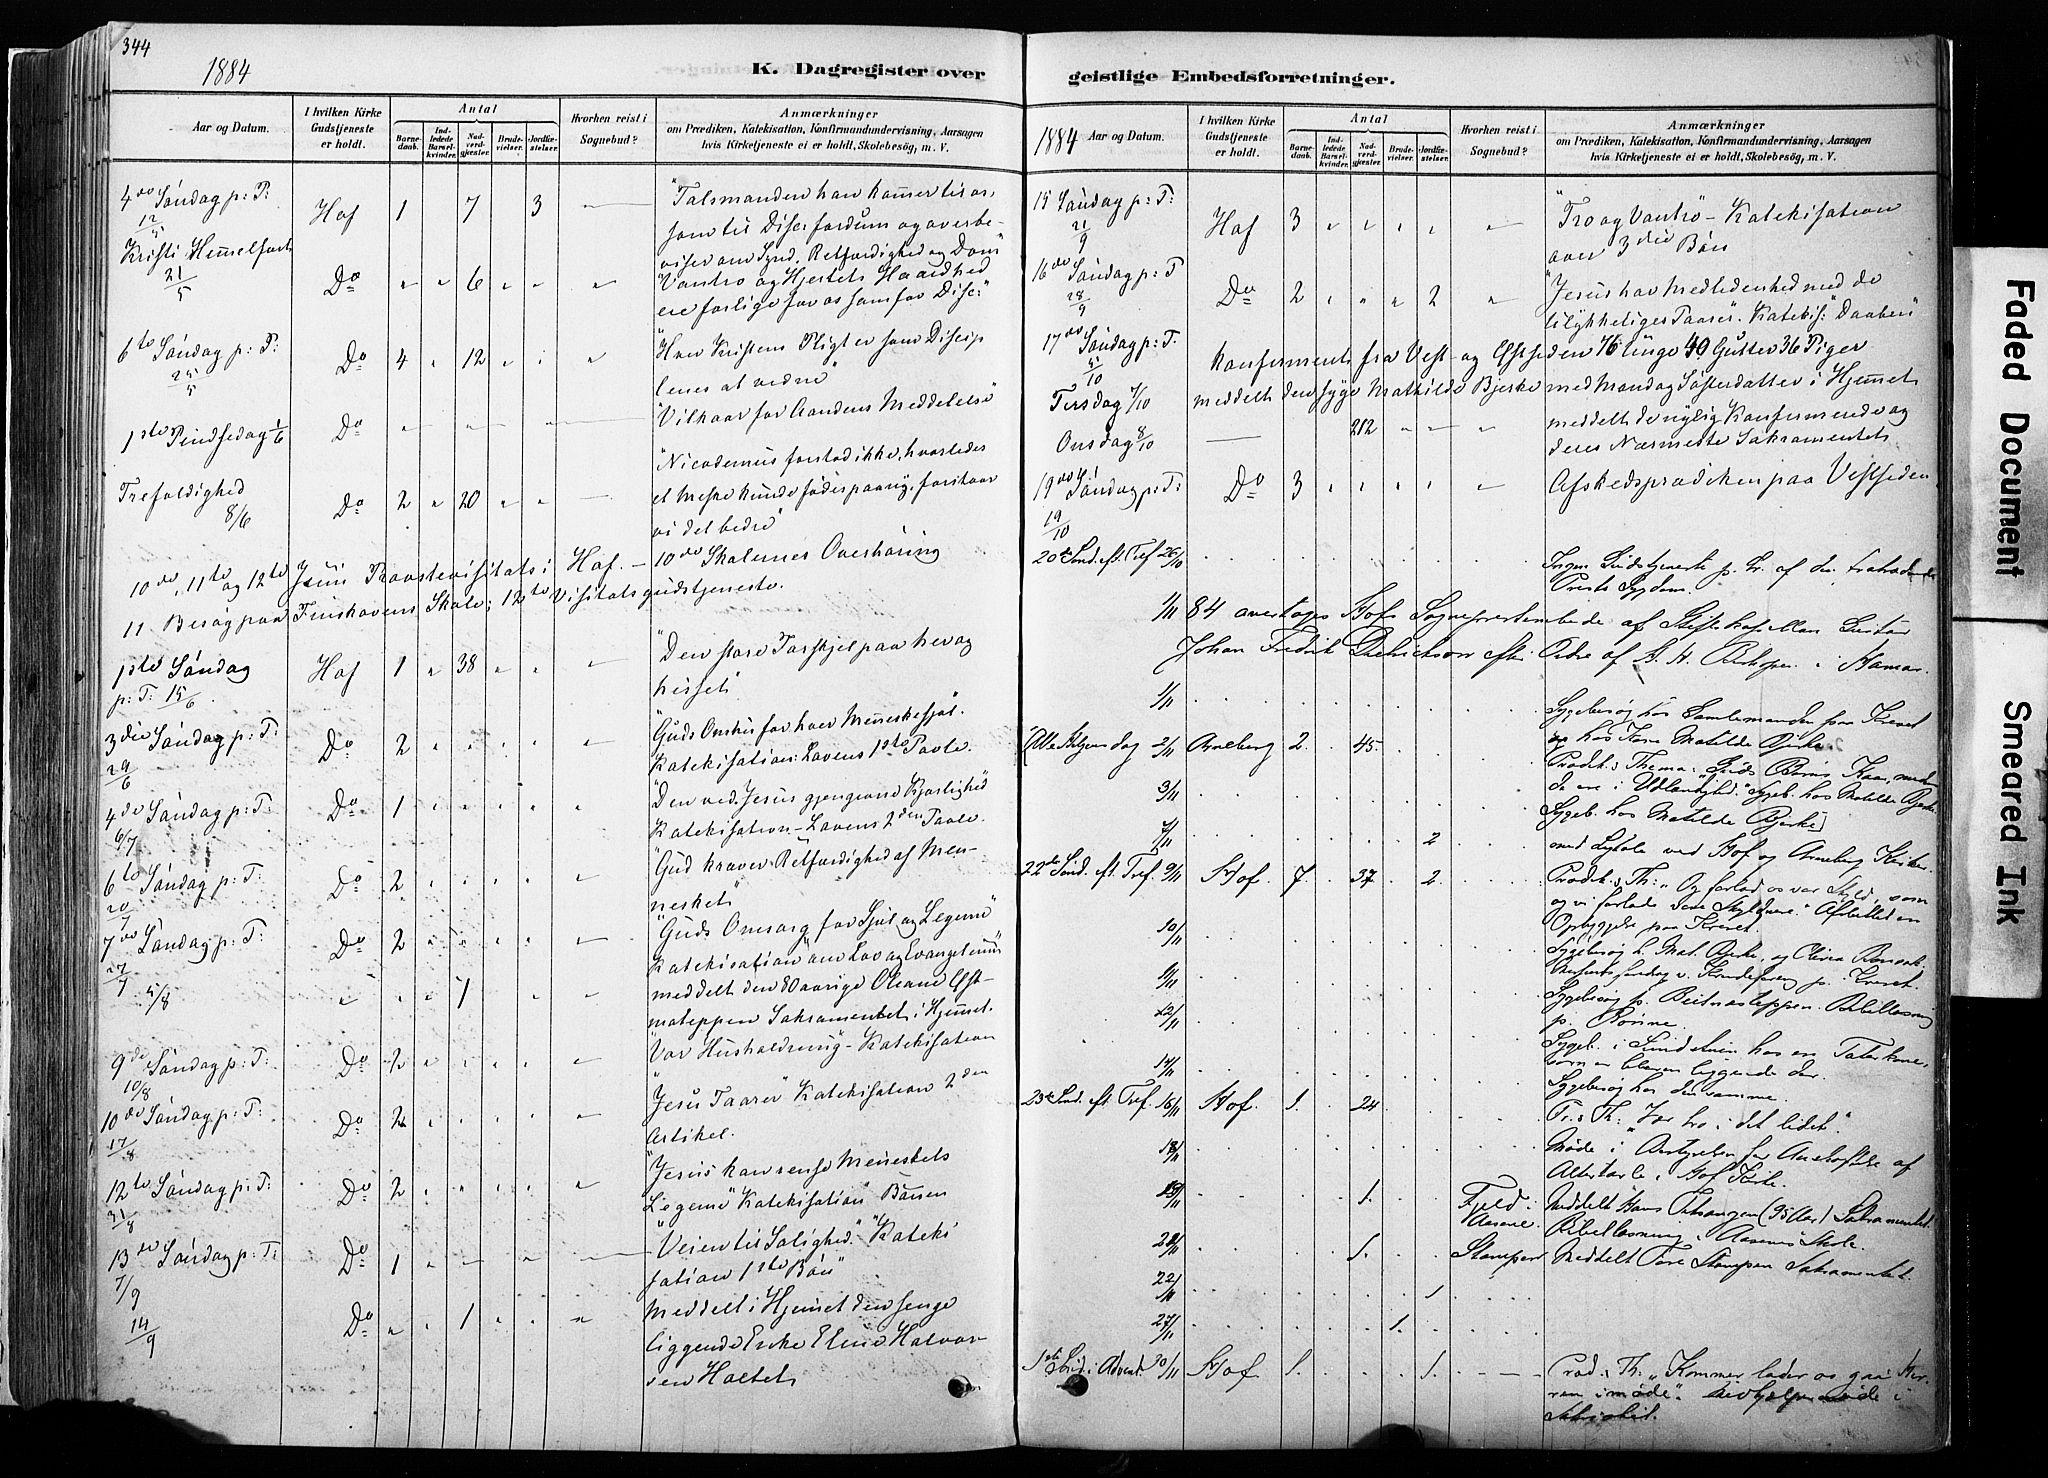 344
1884
K. Dagregister over
Aar og Datum.
I hvilken Kirke Gudstjeneste er holdt.
Antal
Barnedaab.
Indledede Barselkvinder.
Nadverdgjester.
Brudevielser.
Jordfæstelser.
Hvorhen reist i Sognebud?
Anmærkninger
om Prædiken, Katekisation, Konfirmandundervisning, Aarsagen
hvis Kirketjeneste ei er holdt, Skolebesøg, m. V.
4de Søndag p: T: 12/5 Hof 1 " 7 3 "Talsmanden han kommer til os
som til Disc: fordum og overbe-
viser om Synd, Retfærdighed og Dom"
Kristi Himmelfart 21/5 Do " " 6 " " " "Vantro og Hjertets Haardhed
ere farlige for os som for Disc:"
6te Søndag p: P: 25/5 Do 4 " 12 " " " "Hver Kristens Pligt er som Discip
lenes at vidne"
1ste Pindsedag 1/6 Do "Vilkaar for Aandens Meddelelse"
Trefoldighed 8/6 Do 2 " 20 " " "Nicodemus forstod ikke, hvorledes
et Meske kunde fødes paany, forstaar
vi det bedre"
10de, 11te og 12te Juni Provstevisitats i Hof. – 10de Skolernes Overhøring
11 Besøg paa Finskovens Skole; 12te Visitatsgudstjeneste.
1ste Søndag p: T: 15/6 Hof 1 " 38 " " "Den store Forskjel paa her og
hisset"
3die Søndag p: T: 29/6 Do 2 "Guds Omhu for hver Menneskesjæl.
Katekisation: Lovens 1ste Tavle.
4de Søndag p: T: 6/7 Do 1 "Den ved Jesus gjengivne Kjærlighed"
Katekisation – Lovens 2den Tavle.
6te Søndag p: T: 20/7 Do 2 "Gud kræver Retfærdighed af Men-
nesket"
7de Søndag p: T: 27/7 Do 2 "Guds Omsorg for Sjæl og Legeme"
Katekisation "om Lov og Evangelium"
5/8 " " 1 " " " meddelt den 80 aarige Oleane Øst-
mateppen Sakramentet i Hjemmet.
9de Søndag p: T: 10/8 Do 2 "Vor Husholdning" – Katekisation
10de Søndag p: T: 17/8 Do 2 "Jesu Taarer" Katekisation 2den
Artikel.
12te Søndag p: T: 31/8 Do 2 "Jesus kan rense Menneskets
Legeme" Katekisation "Bønnen
13de Søndag p: T: 7/9 Do 1 "Veien til Salighed" "Kateki
sation 1ste Bøn"
14/9 Do " 1 " " " Meddelt i Hjemmet den senge
liggende Enke Eline Halvor
sen Holtet
geistlige Embedsforretninger.
1884 Aar og Datum.
I hvilken Kirke Gudstjeneste er holdt.
Antal
Barnedaab.
Indledede Barselkvinder.
Nadverdgjester.
Brudevielser.
Jordfæstelser.
Hvorhen reist i Sognebud?
Anmærkninger
om Prædiken, Katekisation, Konfirmandundervisning, Aarsagen
hvis Kirketjeneste ei er holdt, Skolebesøg, m. V.
15 Søndag p: T: 21/9 Hof 3 " " " " " "Tro og Vantro – Katekisation
over 3die Bøn
16de Søndag p: T 28/9 Do 2 " " " 2 " "Jesus har Medlidenhed med de
Ulykkeliges Taarer. Katekis: "Daaben"
17de Søndag p: T. 5/10 Konfirmeret fra Vest- og Østsiden 76 Unge 40 Gutter 36 Piger
Tirsdag 7/10 meddelt den syge Mathilde Bjerke med Mand og Søsterdatter i Hjemmet
Onsdag 8/10 212 " " " meddelt de nylig Konfirmerede og
deres Nærmeste Sakramentet
19de Søndag p: T: 19/10 Do 3 " " " " " Afskedsprædiken paa Vestsiden
20de Sønd. eft. Tref 26/10 Ingen Gudstjeneste p. Gr. af den fratrædende
Prests Sygdom.
1/11 84 overtoges Hofs Sogneprestembede af Stiftskapellan Gustav
Johan Fredrik Dietrichson efter Ordre af H. H. Biskopen i Hamar.
1/11 Sygebesøg hos Samlemanden paa Kveset
og hos Kone Matilde Bjerke
(Alle Helgens dag 2/11 Arneberg 2. 45. Prædik. Thema: "Guds Børns Kaar, medens
de ere i Udlændighed." Sygeb. hos Matilde Bjerke
3/11 Sygeb. hos Matilde Bjerke)
7/11 2 med Ligtale ved Hof og Arneberg Kirker.
22de Sønd. eft. Tref. 9/11 Hof. 7. 37. 2. Prædik. Th: "Og forlad os vor Skyld, som
og vi forlade vore Skyldnere." Afholdt en
Opbyggelse paa Kveset.
10/11 Sygebesøg h. Mat. Bjerke, og
11/11
12/11 Sygebesøg p. Bibellæsning
p. Rønne.
14/11 Sygeb. i hos en Taterkone,
som er bleven liggende der.
Sygebesøg hos den samme.
23de Sønd. eft. Tref. 16/11 Hof. 1. 24. Pr. Th: "Vær tro i det lidet".
18/11 Møde i Bestyrelsen for Anskaffelse af
Altertavle i Hof Kirke.
19/11 1. Fjeld i Aasene. Meddelt Hans (95 Aar) Sakramentet.
Bibellæsning i Aasenes Skole.
20/11 1. Stampen Meddelt Tore Stampen Sakramentet.
22/11 1
27/11 1.
1ste Sønd. i Advent. 30/11 Hof 1. 1. Præd. Th: "Kommer lader os gaa Her-
ren i møde".